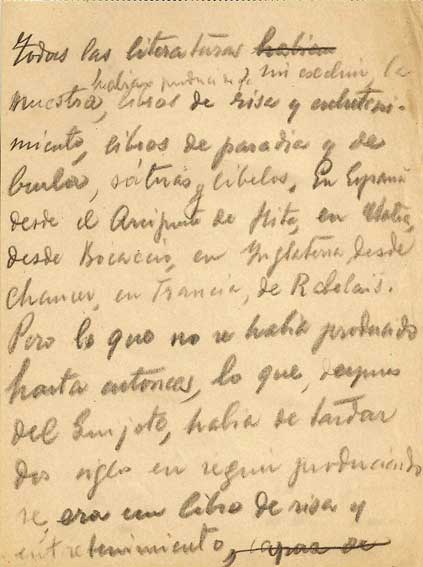 Todas las literaturas habian
habian producido, sin excluir, la
nuestra, libros de risa y entreteni-
miento, libros de parodia y de
burla, sátiras y libelos. En España
desde el Arcipreste de Hita, en Italia,
desde Bocaccio, en Inglaterra desde
Chaucer, en Francia, de Rabelais.
Pero lo que no se habia producido
hasta entonces, lo que, despues
del Quijote, habia de tardar
dos siglos en seguir produciendo
se, era un libro de risa y
entretenimiento, capaz de